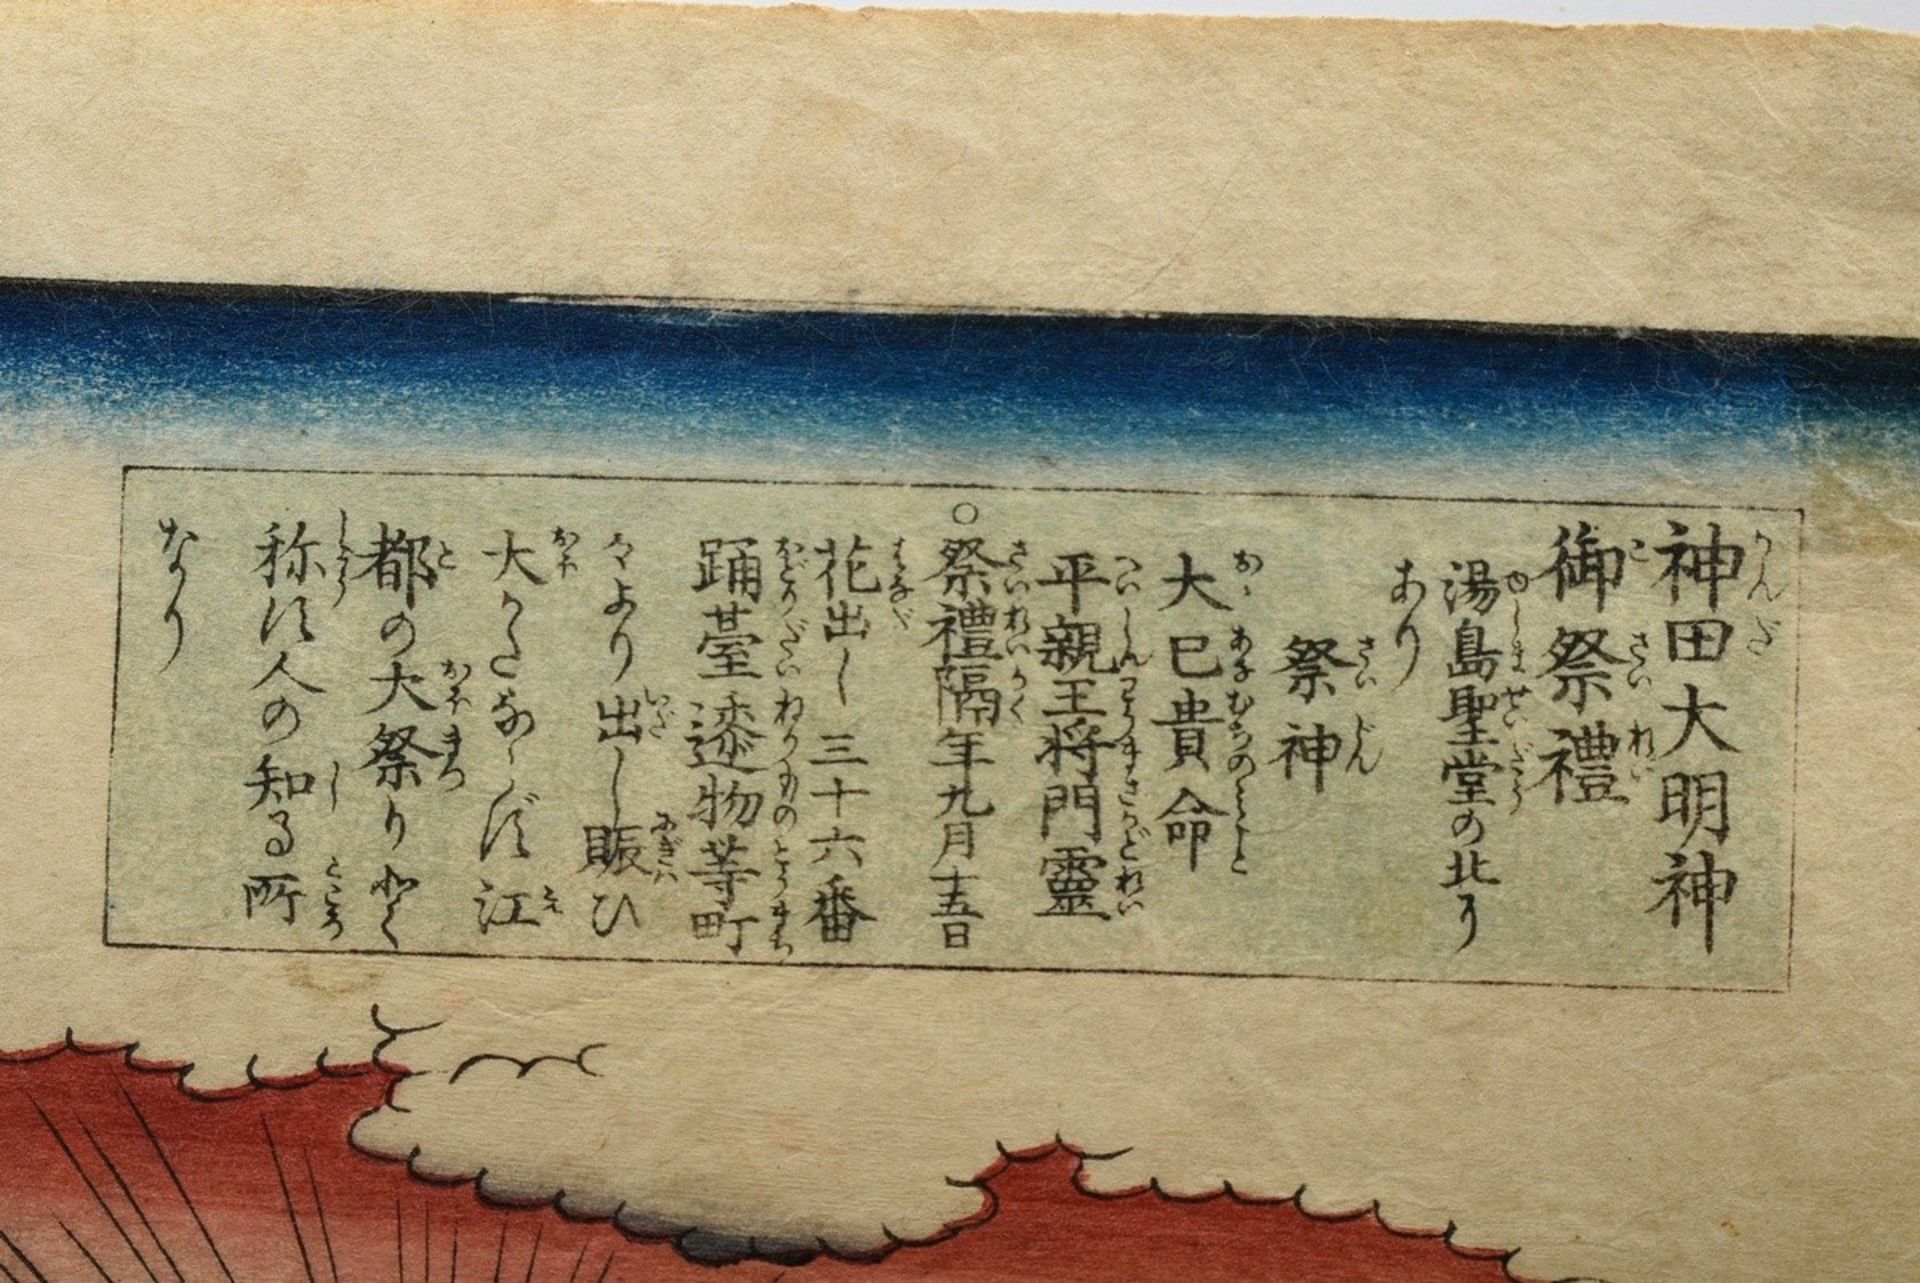 神田大明神
御祭禮
湯島聖堂の北り
あり
祭神
大巳貴命
平親王将門靈
○祭禮隔年九月十五日
花出し三十六番
踊臺邌物等町
々より出し賑ひ
大かたならず江
都の大祭りと
称す人の知る所
なり